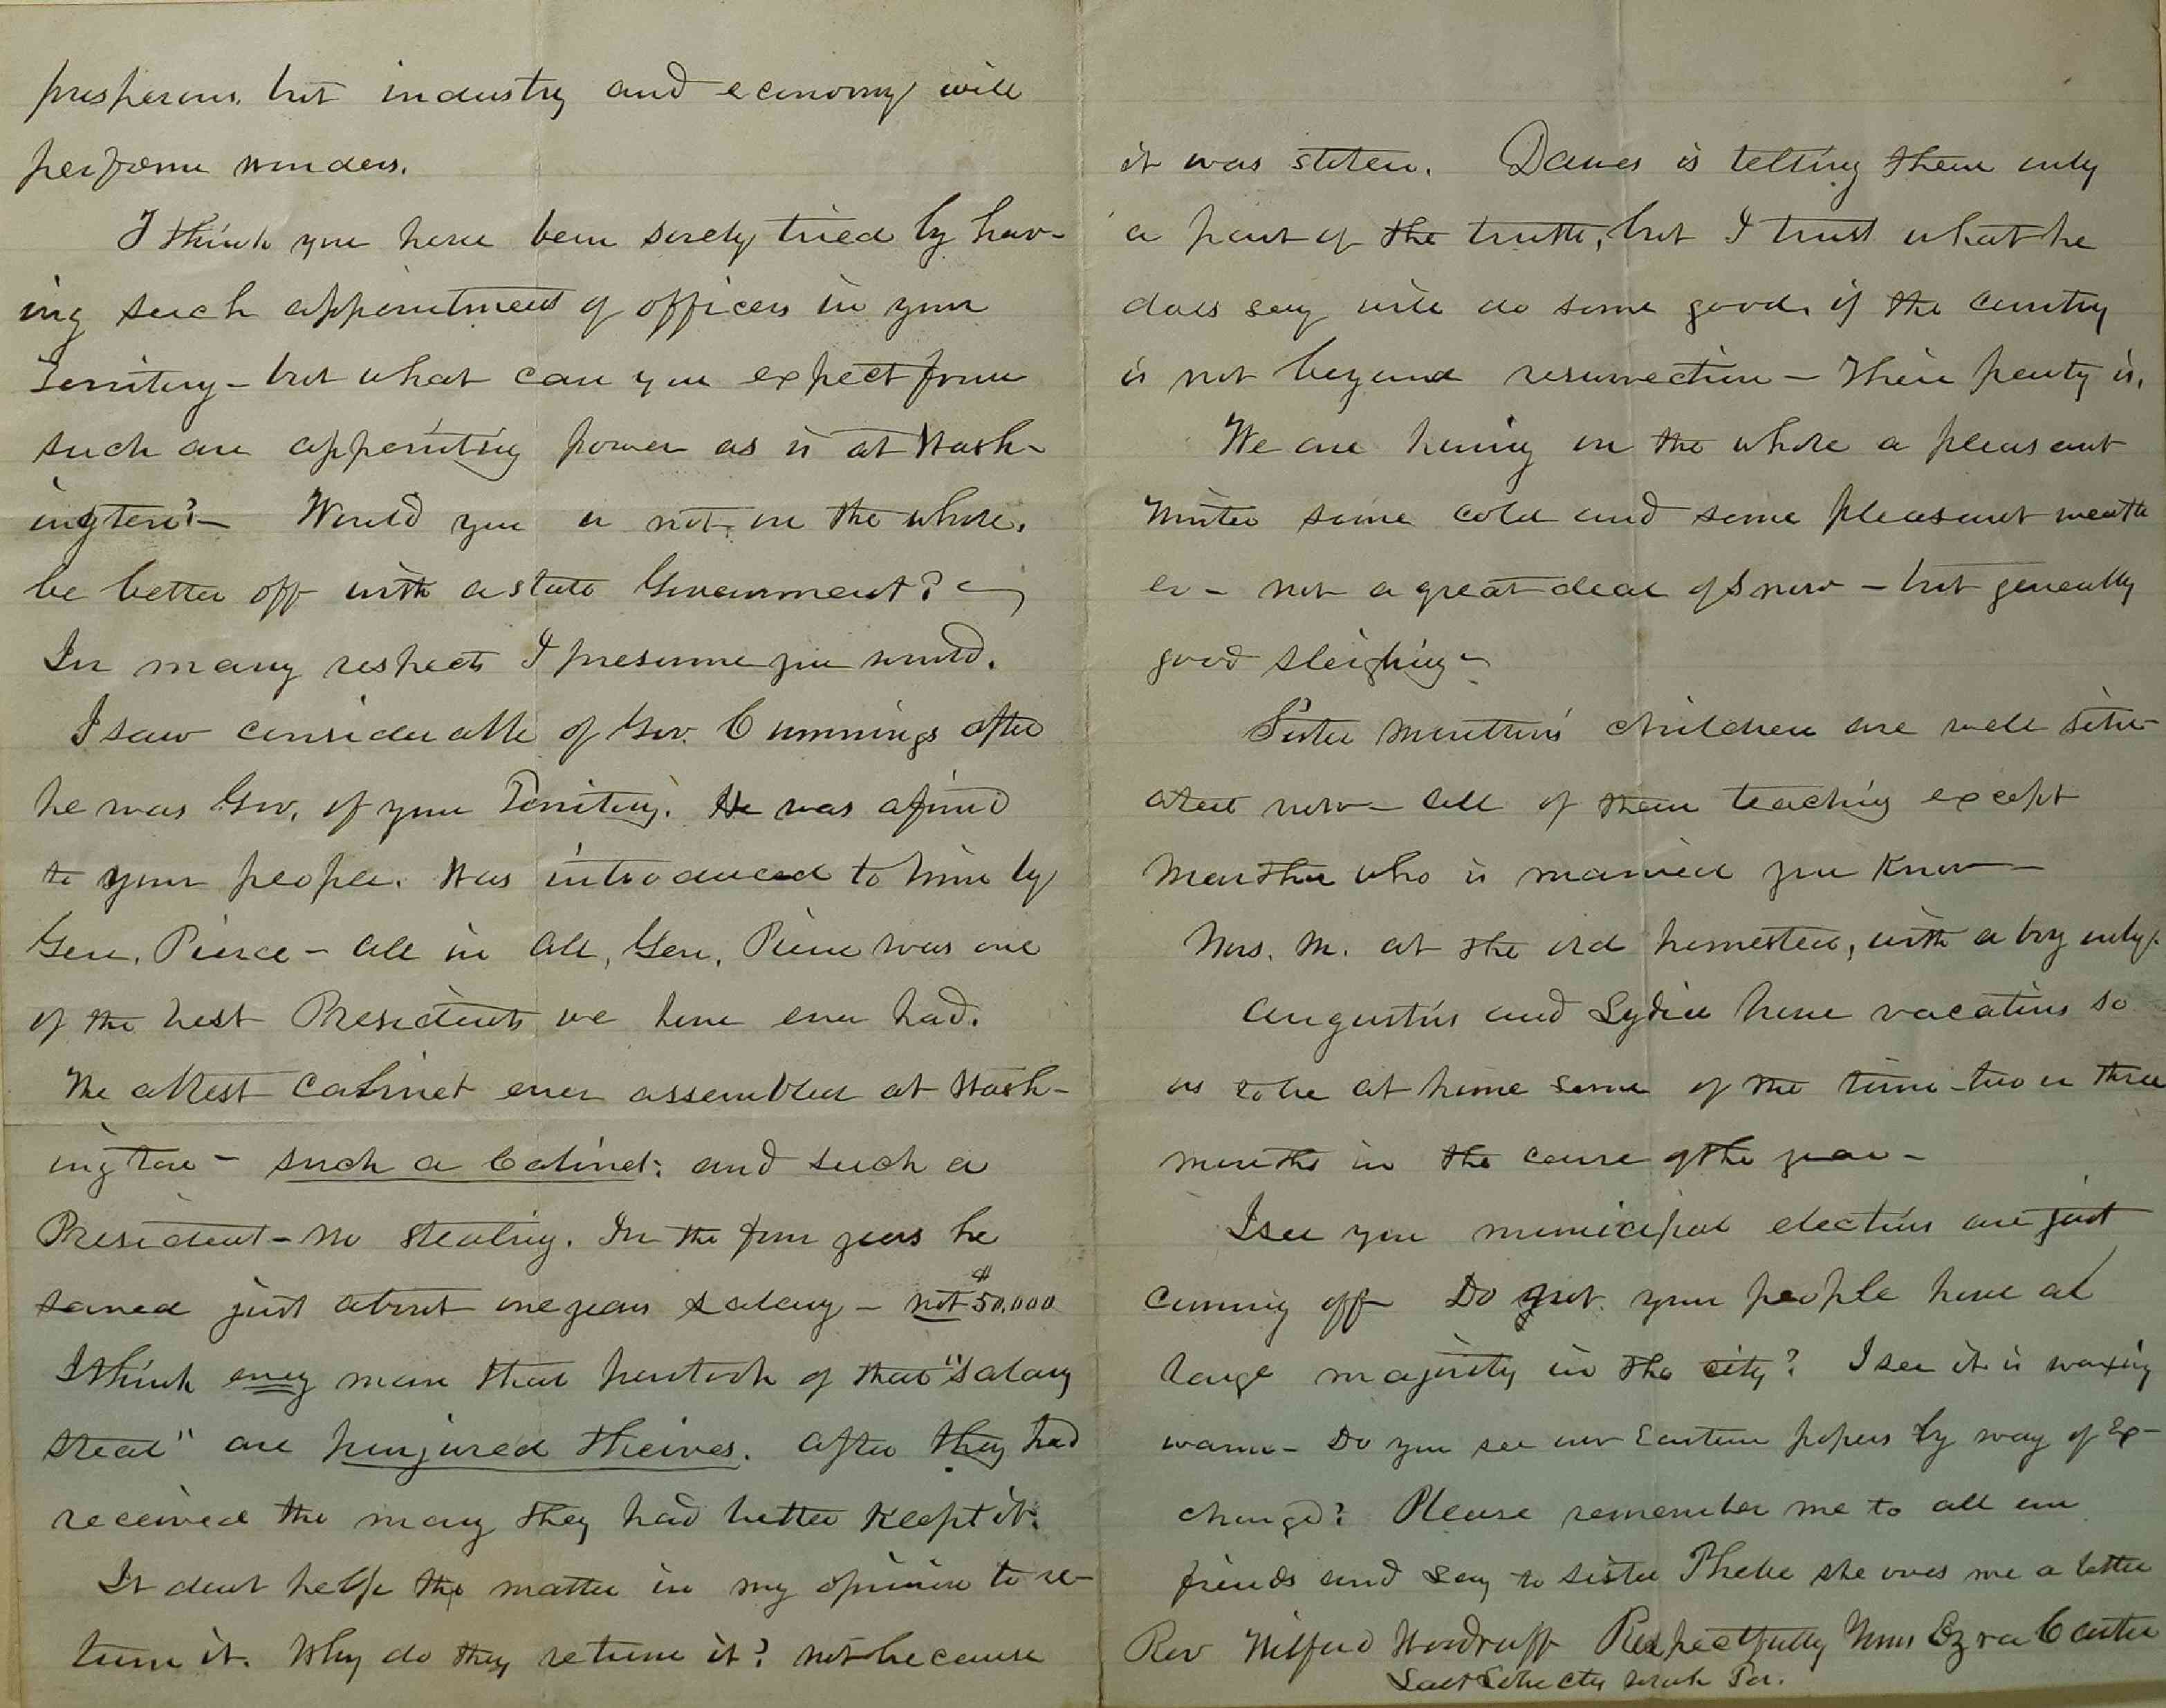 prosperous. but industry and economy will
perform wonders.
I think you have been sorely tried by hav-
ing such appointment of officers in your
Territory - but what can you expect from
such an appointing power as is at Wash-
ington? - Would you or not, on the whole,
be better off with a state Government? -
In many respects I presume you would.
I saw considerable of Gov. Cummings after
he was Gov. of your Territory. He was a friend
to your people. Was introduced to him by
Gen. Pierce - all in all, Gen. Pierce was one
of the best Presidents we have ever had.
The ablest Cabinet ever assembled at Wash-
ington - such a Cabinet; and such a
President - no stealing. In the four years he
saved just about one years salary - not $50,000
I think every man that partook of that "salary
steal" are perjured theives. After they had
received the money they had better keept it.
It dont help the matter in my opinion to re-
turn it. Why do they return it? not because
it was stolen. Dawes is telling them only
a part of the truth, but I trust what he
does say will do some good, if the country
is not beyond resurrection - Their party is.
We are having on the whole a pleasant
Winter some cold and some pleasant weath
er - not a great deal of snow - but generally
good sleighing -
Sister children are well situ-
ated now - all of them teaching except
Martha who is married you know -
Mrs. M. at the old homestead, with a boy only.
Augustus and Lydia have vacations so
as to be at home some of the time - two or three
months in the course of the year -
I see you municipal elections are just
coming off Do not your people have a
large majority in the city? I see it is waxing
warm - Do you see our Eastern papers by way of Ex-
change? Please remember me to all our
friends and say to sister Phebe she owes me a letter
Rev Wilford Woodruff Respectfully Yours Ezra Carter
Salt Lake City Utah Ter.